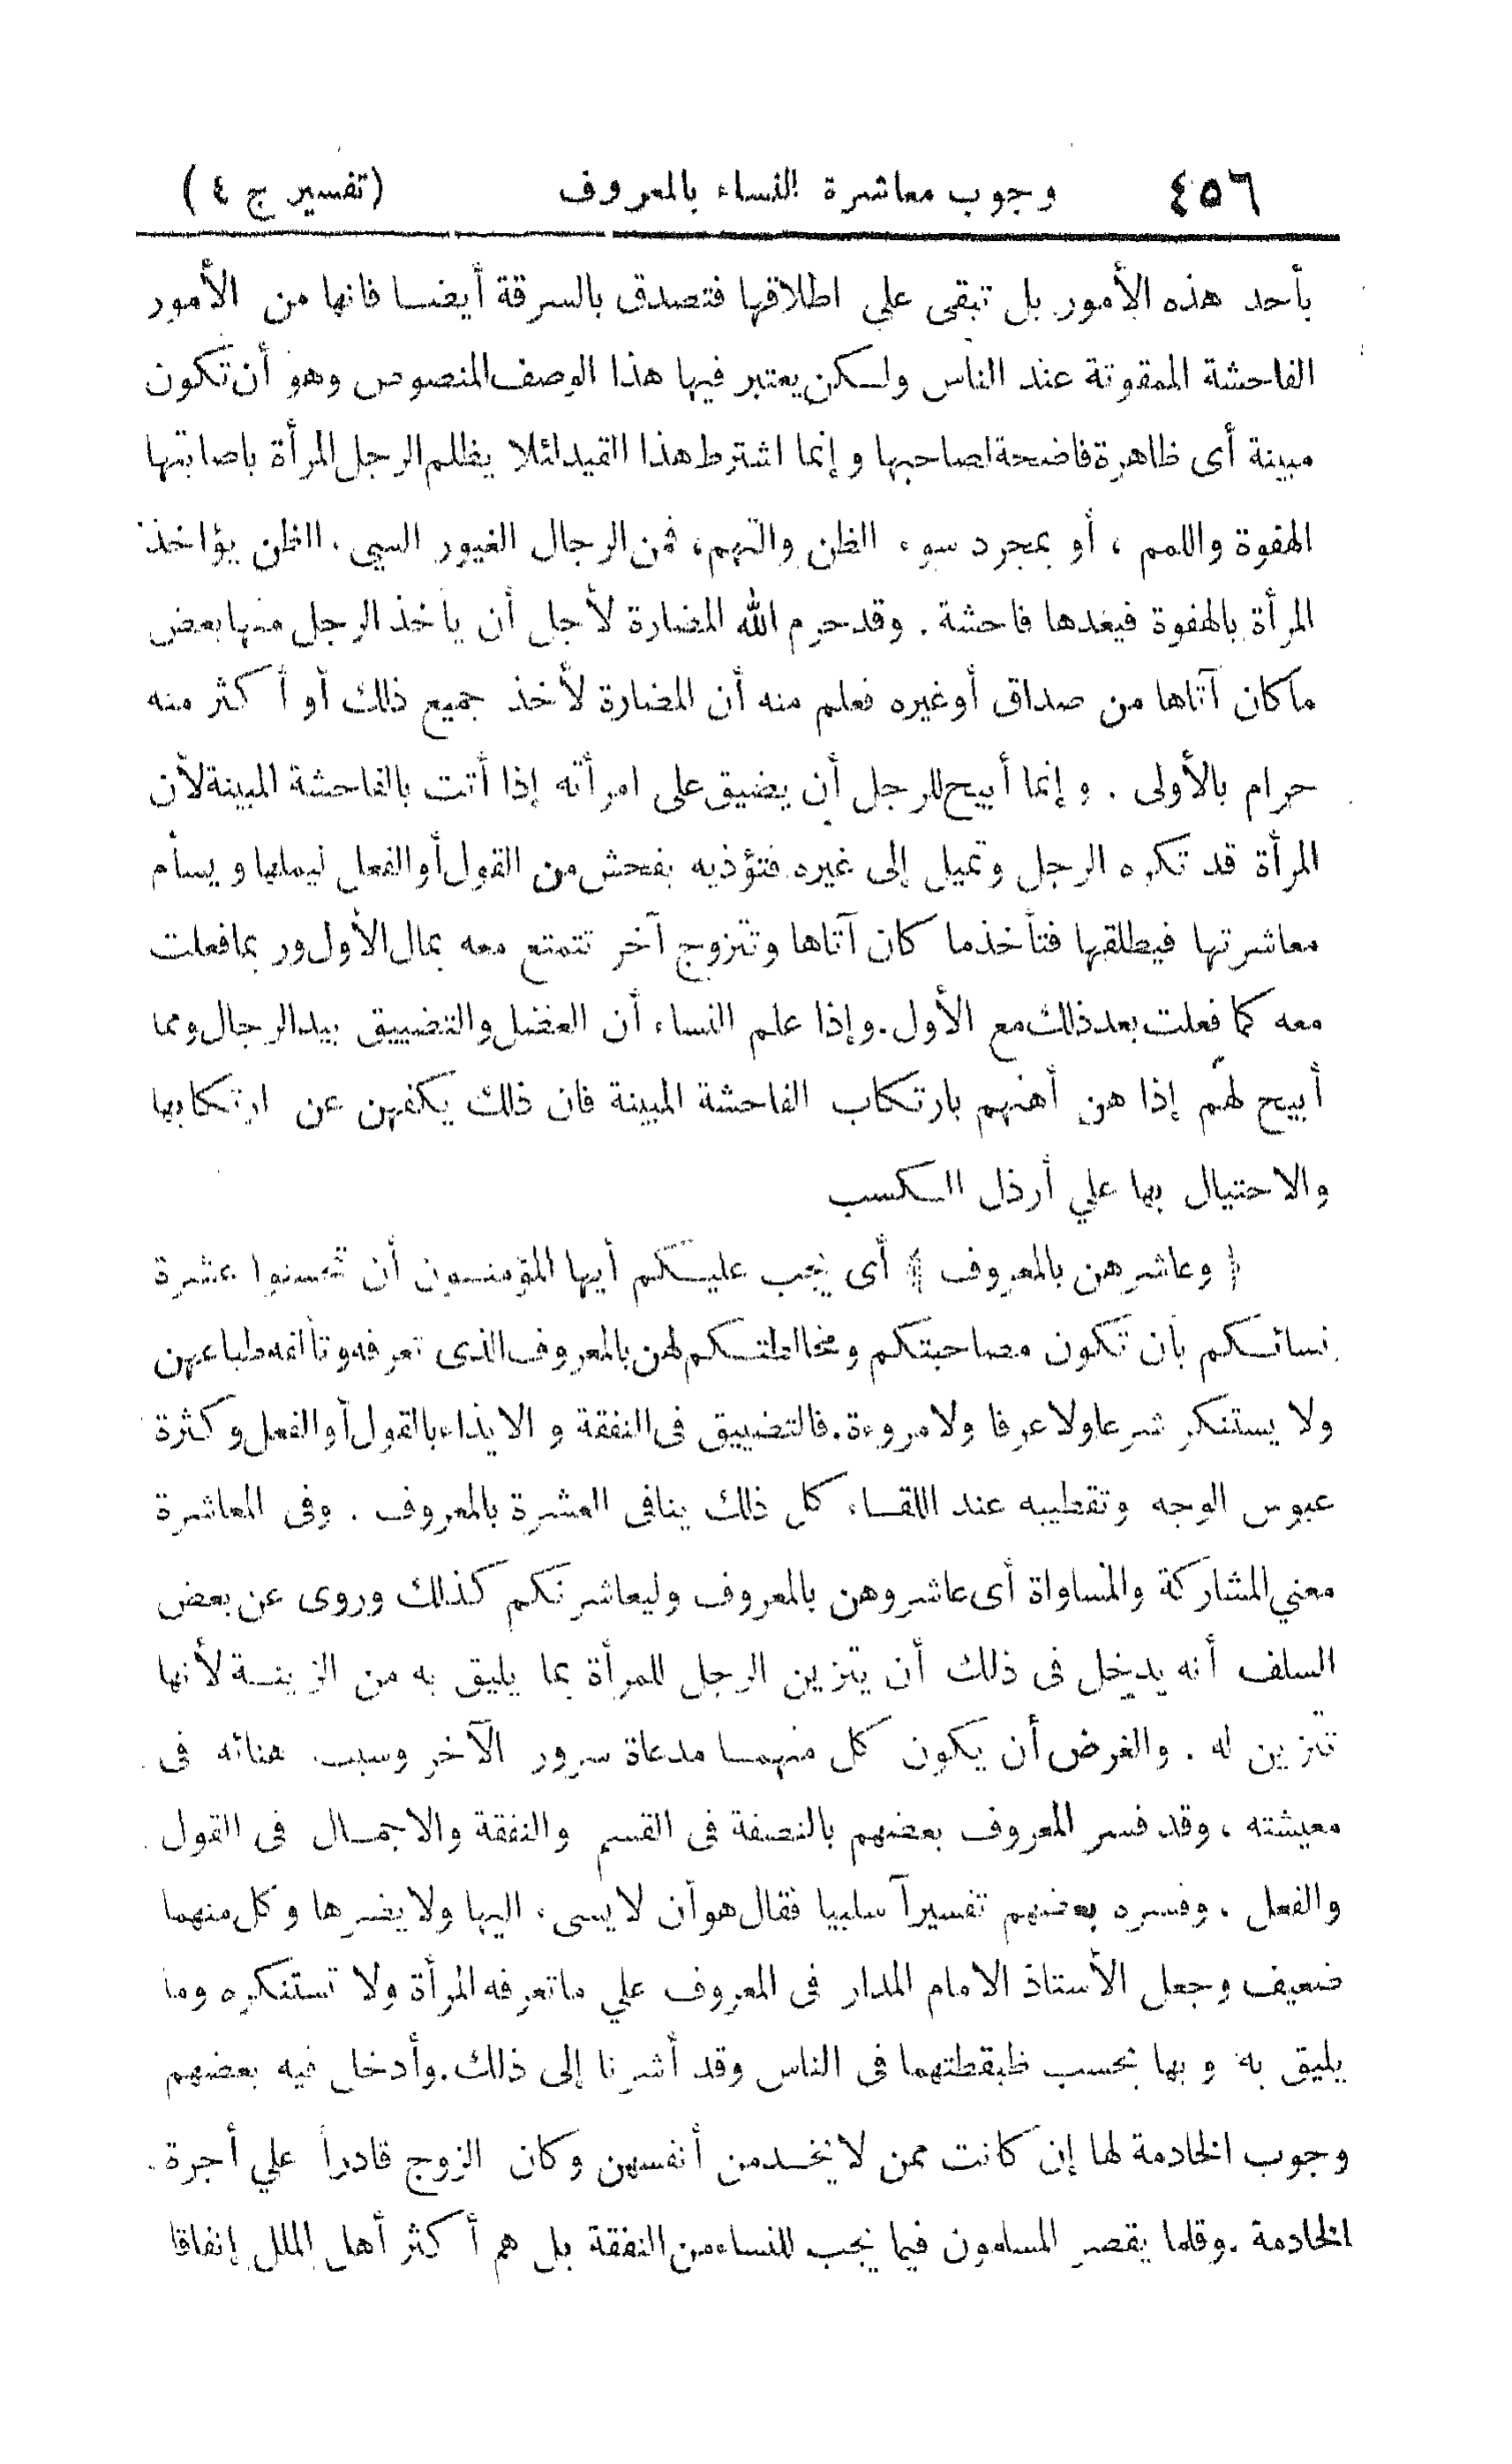 ٤٥٦ وجوب معاشرة النساء بالمعروف (تفسير ج ٤)
بأحد هذه الأمور بل تبقى على اطلاقها فتصدق بالسرقة أيضا فانها من الأمور
الفاحشة الممقوتة عند الناس ولكن يعتبر فيها هذا الوصف المنصوص وهو أن تكون
مبينة أى ظاهرة فاضحة لصاحبها وإنما اشترط هذا القيد لئلا يظلم الرجل المرأة باصابتها
الهفوة واللمم ، أو بمجرد سوء الظن والتهم، فمن الرجال الغيور السيىء الظن يؤاخذ
المرأة بالهفوة فيعدها فاحشة . وقد حرم الله المضارة لأجل أن يأخذ الرجل منها بعض
ما كان آتاها من صداق أو غيره فعلم منه أن المضارة لأخذ جميع ذلك أو أكثر منه
حرام بالأولى . وإنما أبيح للرجل أن يضيق على امرأته إذا أتت بالفاحشة المبينة لأن
المرأة قد تكره الرجل وتميل إلى غيره فتؤذيه بفحش من القول أو الفعل ليملها ويسأم
معاشرتها فيطلقها فتأخذ ما كان آتاها وتتزوج آخر تتمتع معه بمال الأول وربما فعلت
معه كما فعلت بعد ذلك مع الأول. وإذا علم النساء أن العضل والتضييق بيد الرجال ومما
أبيح لهم إذا هن أهنهم بارتكاب الفاحشة المبينة فان ذلك يكفهن عن ارتكابها
والاحتيال بها علي أرذل الكسب
﴿ وعاشرهن بالمعروف ﴾ أى يجب عليكم أيها المؤمنون أن تحسنوا عشرة
نسائكم بأن تكون مصاحبتكم ومخالطتكم لهن بالمعروف الذى تعرفه وتألفه طباعهن
ولا يستنكر شرعا ولا عرفا ولا مروءة. فالتضييق فى النفقة والايذاء بالقول أو الفعل وكثرة
عبوس الوجه وتقطيبه عند اللقاء كل ذلك ينافى العشرة بالمعروف . وفى المعاشرة
معني المشاركة والمساواة أى عاشروهن بالمعروف وليعاشرنكم كذلك وروى عن بعض
السلف أنه يدخل فى ذلك أن يتزين الرجل للمرأة بما يليق به من الزينة لأنها
تتزين له . والغرض أن يكون كل منهما مدعاة سرور الآخر وسبب هنائه فى
معيشته ، وقد فسر المعروف بعضهم بالنصفة فى القسم والنفقة والاجمال فى القول
والفعل ، وفسره بعضهم تفسيراً سلبيا فقال هو أن لا يسىء اليها ولا يضرها وكل منهما
ضعيف وجعل الأستاذ الامام المدار فى المعروف علي ما تعرفه المرأة ولا تستنكره وما
يليق به وبها بحسب طبقتهما فى الناس وقد أشرنا إلى ذلك. وأدخل فيه بعضهم
وجوب الخادمة لها إن كانت ممن لا يخدمن أنفسهن وكان الزوج قادراً علي أجرة
الخادمة . وقلما يقصر المسلمون فيما يجب للنساء من النفقة بل هم أكثر أهل الملل إنفاقا